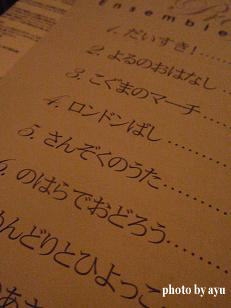 Ensemble
1. だいすき!......
2. よるのおはなし
3. こぐまのマーチ......
4. ロンドンばし......
5. さんぞくのうた......
6. のはらでおどろう......
めんどりとひよっこ
photo by ayu